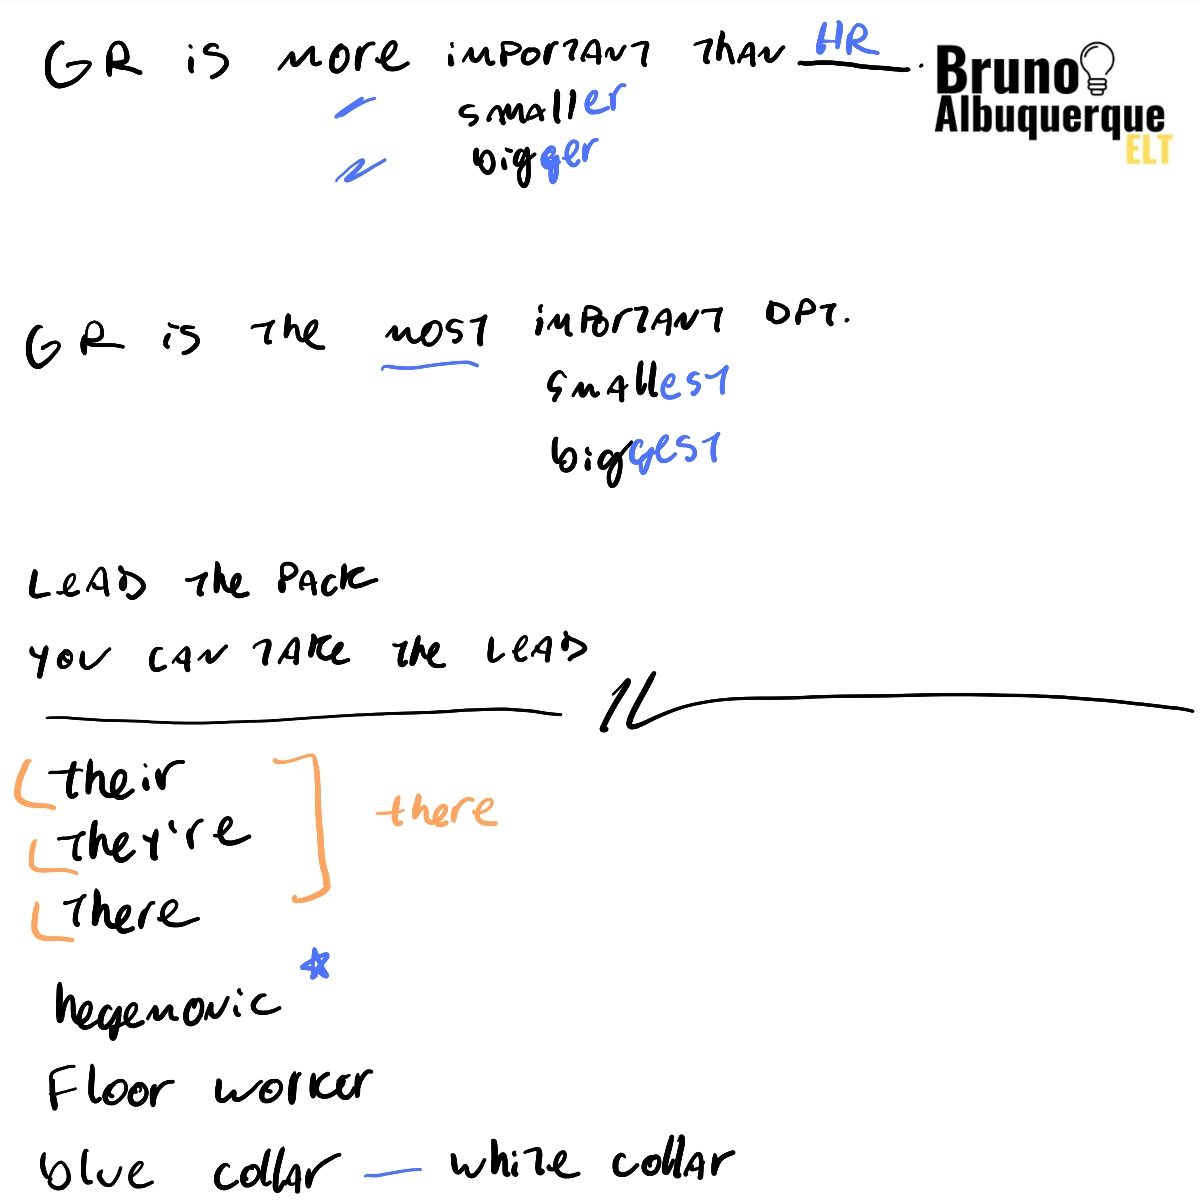 GR is more important than HR.
smaller
bigger
Bruno
Albuquerque
ELT
GR is the most important DPT.
smallest
biggest
Lead the pack
You can take the lead
their
they're
there
there
hegemonic
Floor worker
blue collar — white collar